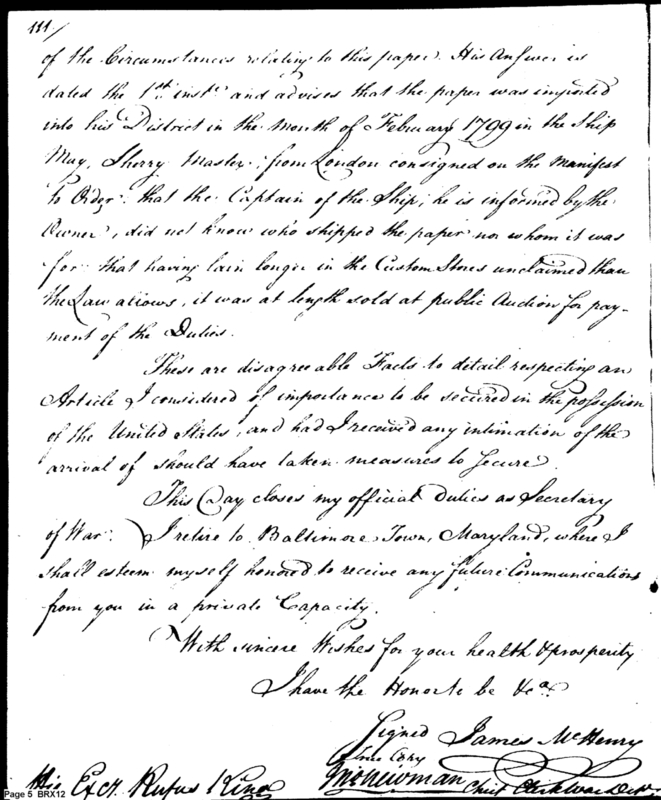 111/
of the Circumstances relating to this paper. His Answer is
dated the 1st. inst. and advises that the paper was imported
into his District in the month of February 1799 in the Ship
May, Sherry Master, from London consigned on the Manifest
To Order: that the Captain of the Ship, he is informed by the
Owner, did not know who shipped the paper nor whom it was
for: that having lain longer in the Custom Stores unclaimed than
the Law allows, it was at length sold at public Auction for pay-
ment of the Duties.
These are disagreeable Facts to detail respecting an
Article I considered of importance to be secured in the possession
of the United States, and had I received any intimation of the
arrival of should have taken measures to secure.
This Day closes my official Duties as Secretary
of War. I retire to Baltimore Town, Maryland, where I
shall esteem myself honored to receive any future Communications
from you in a private Capacity.
With sincere Wishes for your health & prosperity
I have the Honor to be &ca.
Signed James McHenry
True Copy
Jno Newman Chief Clerk War Dept
His Excy. Rufus King
Page 5 BRX12